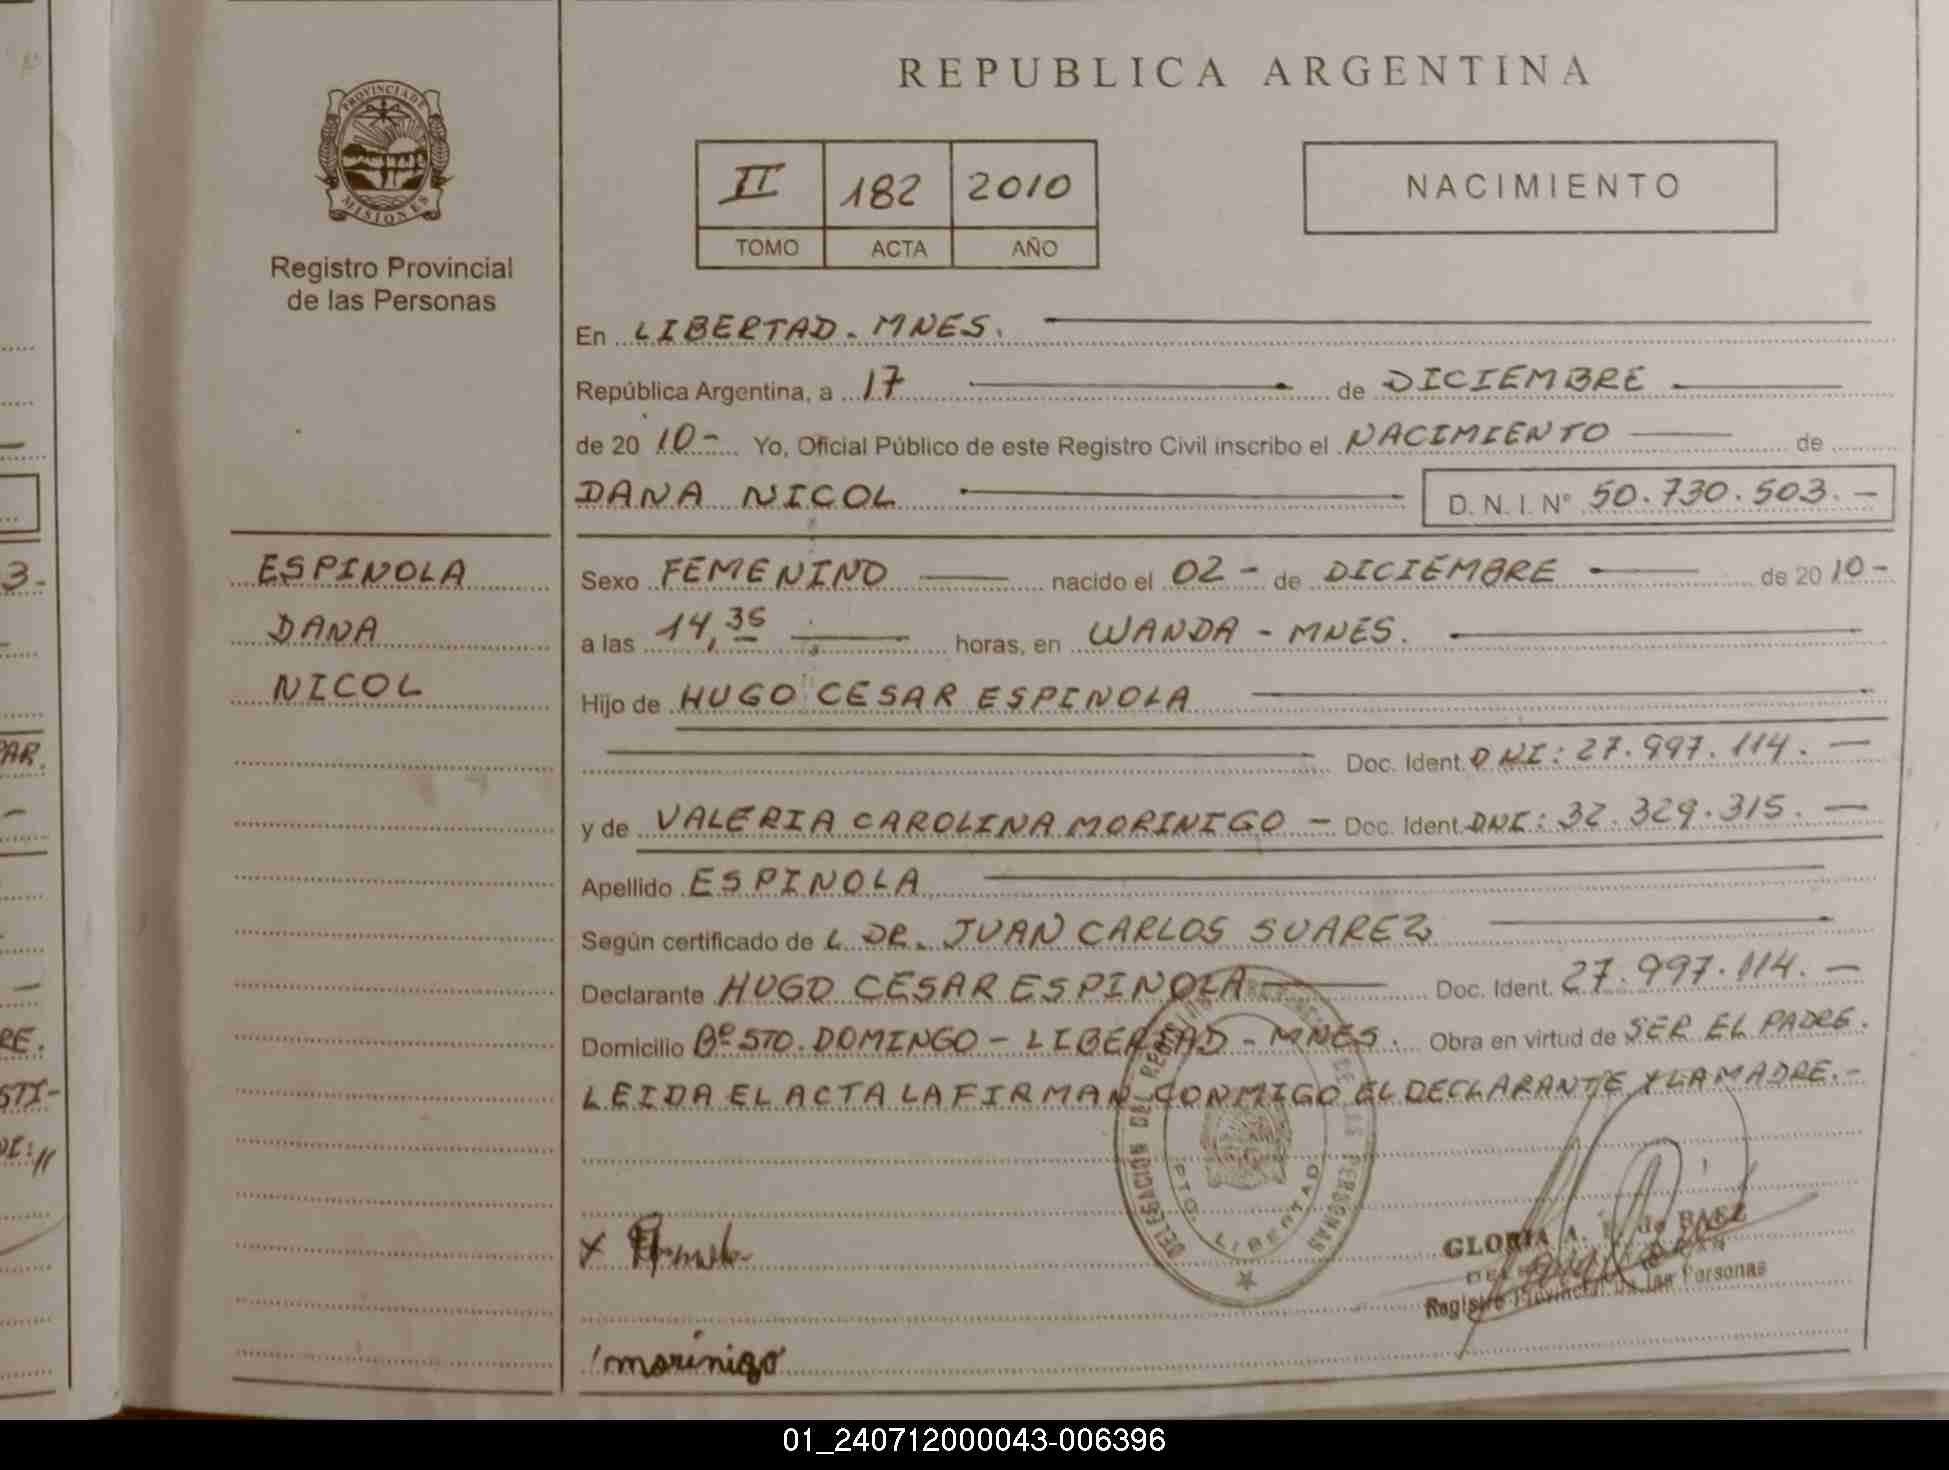 REPUBLICA ARGENTINA
PROVINCIA DE
MISIONES
Registro Provincial
de las Personas
II 182 2010
TOMO ACTA AÑO
NACIMIENTO
En LIBERTAD - MNES.
República Argentina, a 17 de DICIEMBRE
de 20 10- Yo, Oficial Público de este Registro Civil inscribo el NACIMIENTO de
DANA NICOL D. N. I. N° 50.730.503.-
ESPINOLA
DANA
NICOL
Sexo FEMENINO nacido el 02 - de DICIEMBRE de 20 10-
a las 14,35 horas, en WANDA - MNES.
Hijo de HUGO CESAR ESPINOLA
Doc. Ident. DNI: 27.997.114.-
y de VALERIA CAROLINA MORINIGO - Doc. Ident. DNI: 32.329.315.-
Apellido ESPINOLA
Según certificado de L DR. JUAN CARLOS SUAREZ
Declarante HUGO CESAR ESPINOLA Doc. Ident. 27.997.114.-
Domicilio Bº STO. DOMINGO - LIBERTAD - MNES. Obra en virtud de SER EL PADRE.
LEIDA EL ACTA LA FIRMAN CONMIGO EL DECLARANTE Y LA MADRE.-
DELEGACION DEL REGISTRO DE LAS PERSONAS
PTO. LIBERTAD
GLORIA A. de BAEZ
Registro Provincial De las Personas
morinigo
3-
PAR.
RE.
STI-
01_240712000043-006396